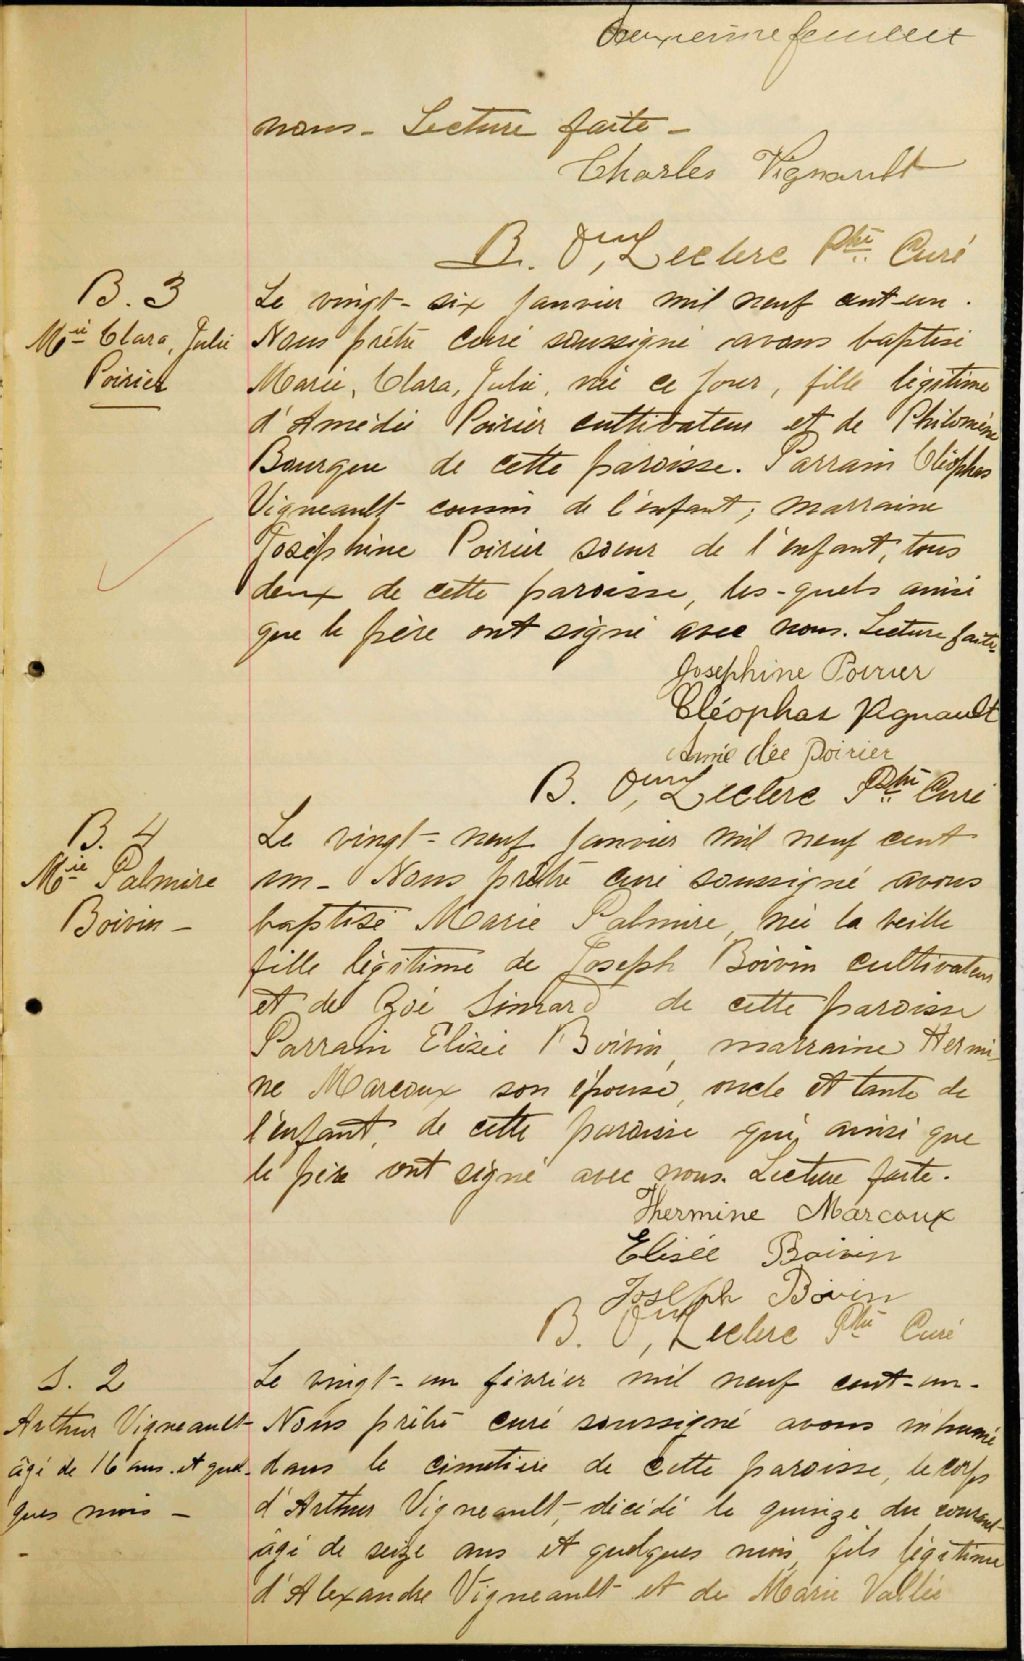 deuxième feuillet
nous - Lecture faite -
Charles Vignault
B. Oun, Leclerc Ptre Curé
B. 3
Mie Clara, Julie
Poirier
Le vingt-six Janvier mil neuf cent-un.
Nous prêtre curé soussigné avons baptisé
Marie, Clara, Julie, née ce jour, fille légitime
d'Amédée Poirier cultivateur et de Philomène
Bourque de cette paroisse. Parrain Cléophas
Vigneault cousin de l'enfant; marraine
Joséphine Poirier soeur de l'enfant, tous
deux de cette paroisse, les-quels ainsi
que le père ont signé avec nous. Lecture faite.
Josephine Poirier
Cléophas Vignault
Amédée Poirier
B. Oun, Leclerc Ptre Curé
B. 4
Mie Palmire
Boivin -
Le vingt-neuf Janvier mil neuf cent
un - Nous prêtre curé soussigné avons
baptisé Marie Palmire, née la veille
fille légitime de Joseph Boivin cultivateur
et de Zoé Simard de cette paroisse
Parrain Elisée Boivin, marraine Hermi-
ne Marcoux son épouse, oncle et tante de
l'enfant, de cette paroisse qui, ainsi que
le père ont signé avec nous. Lecture faite.
Thermine Marcoux
Elisée Boivin
Joseph Boivin
B. Oun, Leclerc Ptre Curé
S. 2
Arthur Vigneault
âgé de 16 ans et quel-
ques mois -
Le vingt-un février mil neuf cent-un.
Nous prêtre curé soussigné avons inhumé
dans le cimetière de cette paroisse, le corps
d'Arthur Vigneault, décédé le quinze du courant
âgé de seize ans et quelques mois, fils légitime
d'Alexandre Vigneault et de Marie Vallée